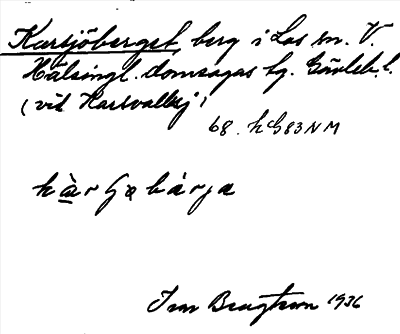 Karsjöberget, berg i Los sn. V.
Hälsingl. domsagas tg. Gävleb. l.
(vid Karsvallsj)
68. h G83NM
bärja
Ivar Bragtson 1936